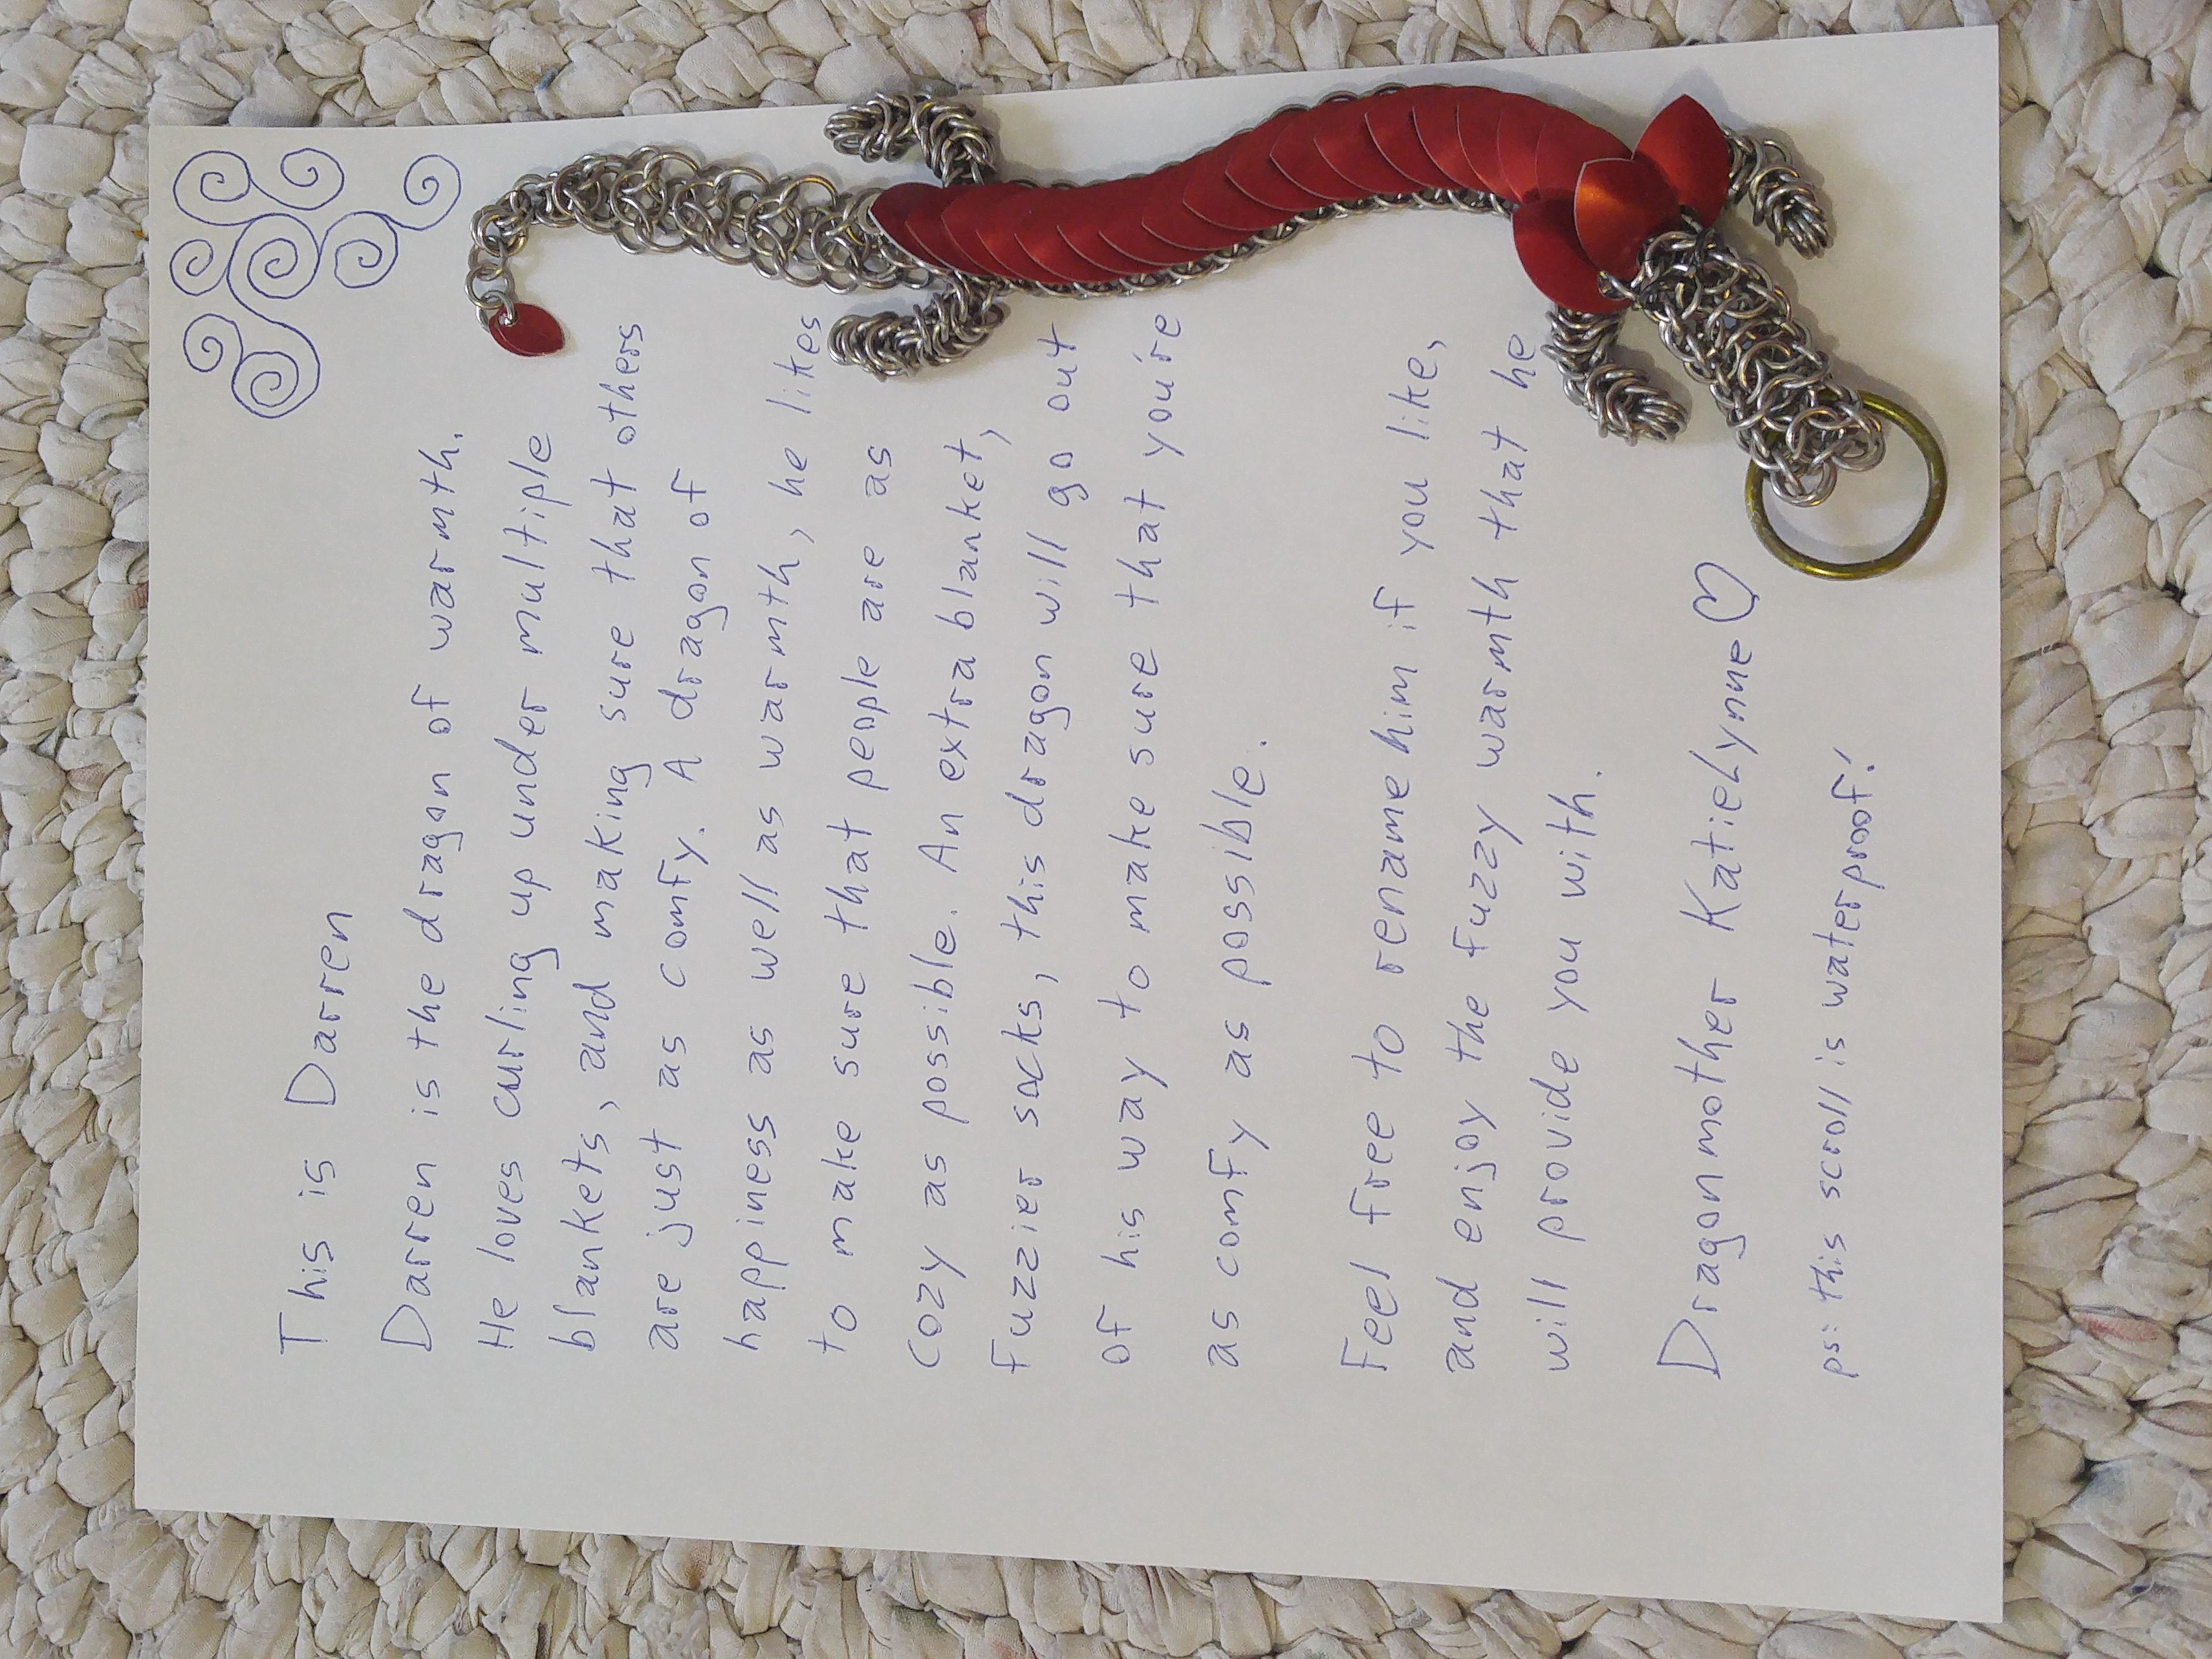 This is Darren
Darren is the dragon of warmth.
He loves curling up under multiple
blankets, and making sure that others
are just as comfy. A dragon of
happiness as well as warmth, he likes
to make sure that people are as
cozy as possible. An extra blanket,
fuzzier socks, this dragon will go out
of his way to make sure that you're
as comfy as possible.
Feel free to rename him if you like,
and enjoy the fuzzy warmth that he
will provide you with.
Dragonmother KatieLynne♡
ps: this scroll is waterproof!